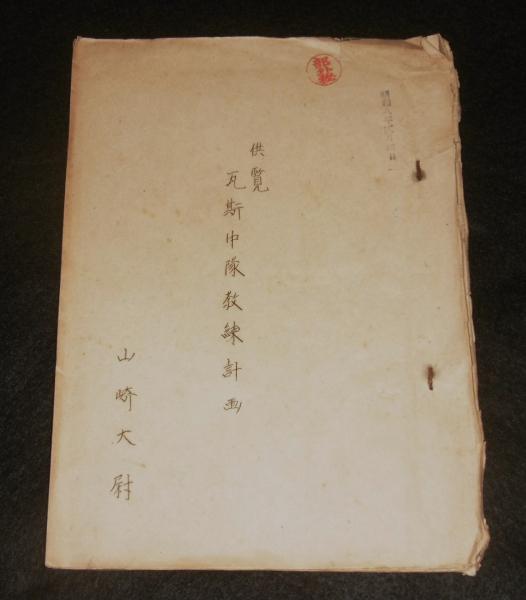 部外秘
供覧
瓦斯中隊教練計画
山崎大尉